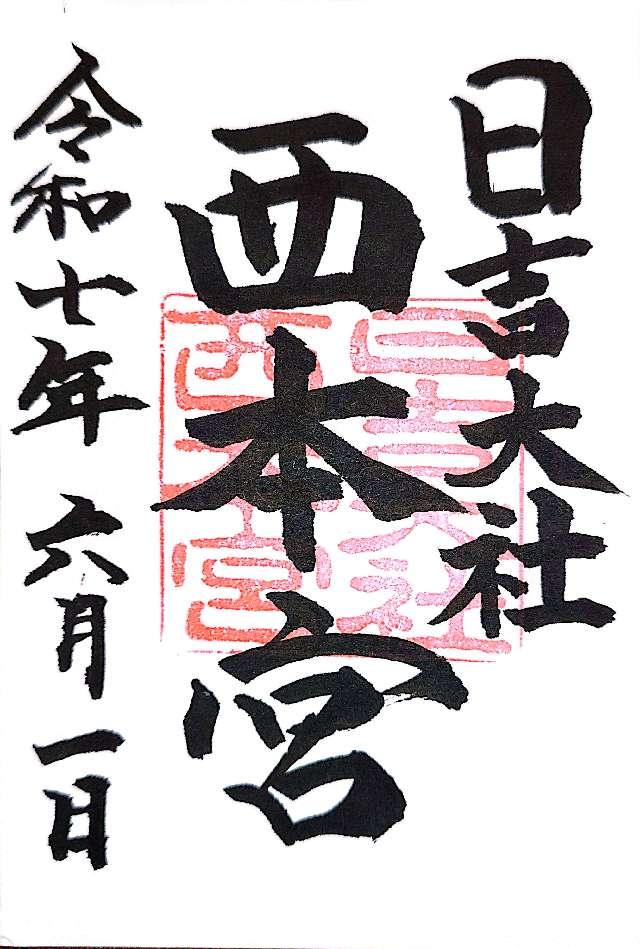 日吉大社
西本宮
令和七年 六月一日
日吉大社
西本宮